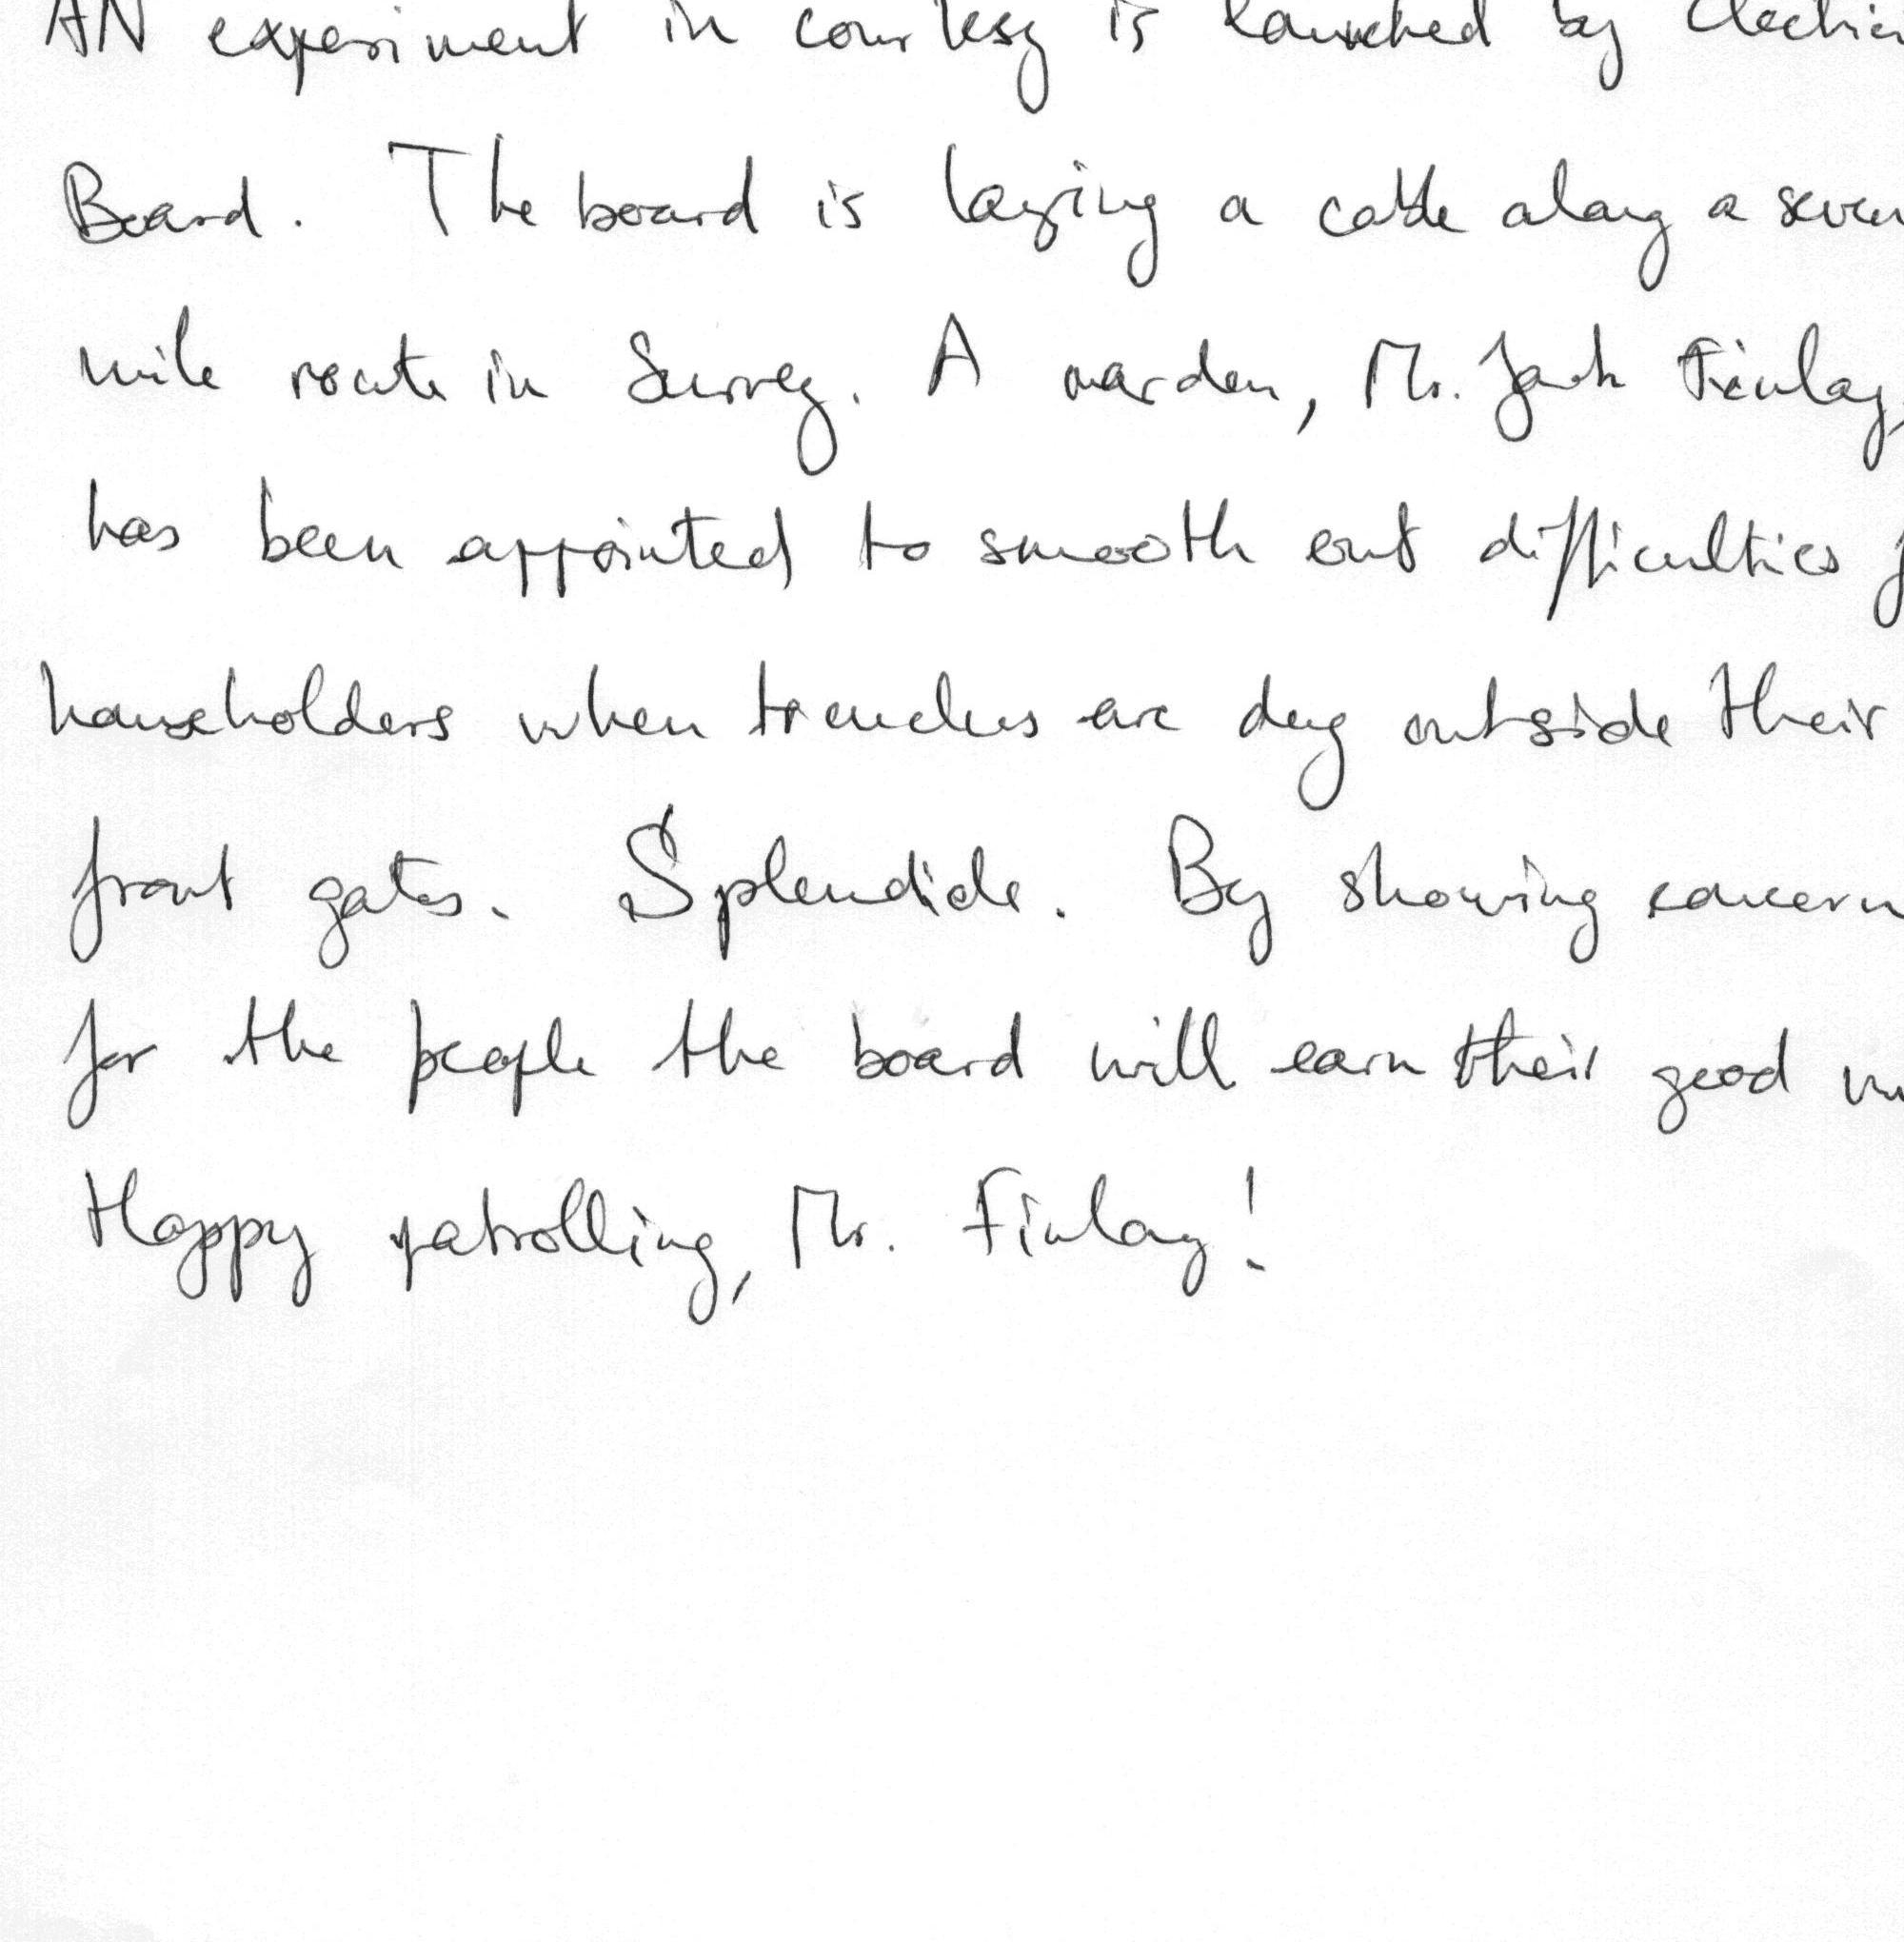 AN experiment in courtesy is launched by
Board. The board is laying a cable along a seven
mile route in Surrey. A warden, Mr. Jack Finlay,
has been appointed to smooth out difficulties
householders when trenches are dug outside their
front gates. Splendide. By showing concern
for the people the board will earn their good
Happy patrolling, Mr. Finlay!